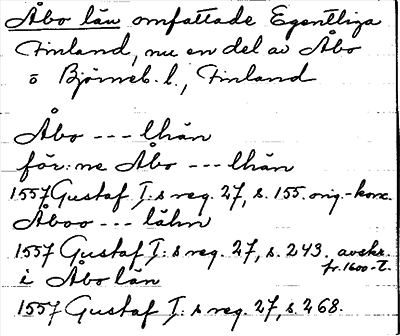 Åbo län omfattade Egentliga
Finland, nu en del av Åbo
o Björneb. l., Finland
Åbo --- lhän
för:ne Åbo --- lhän
1557 Gustaf I:s reg. 27, s. 155. orig.-konc.
Åboo --- lähn
1557 Gustaf I:s reg. 27, s. 243. avskr.
fr. 1600-t.
i Åbo län
1557 Gustaf I:s reg. 27, s. 268.